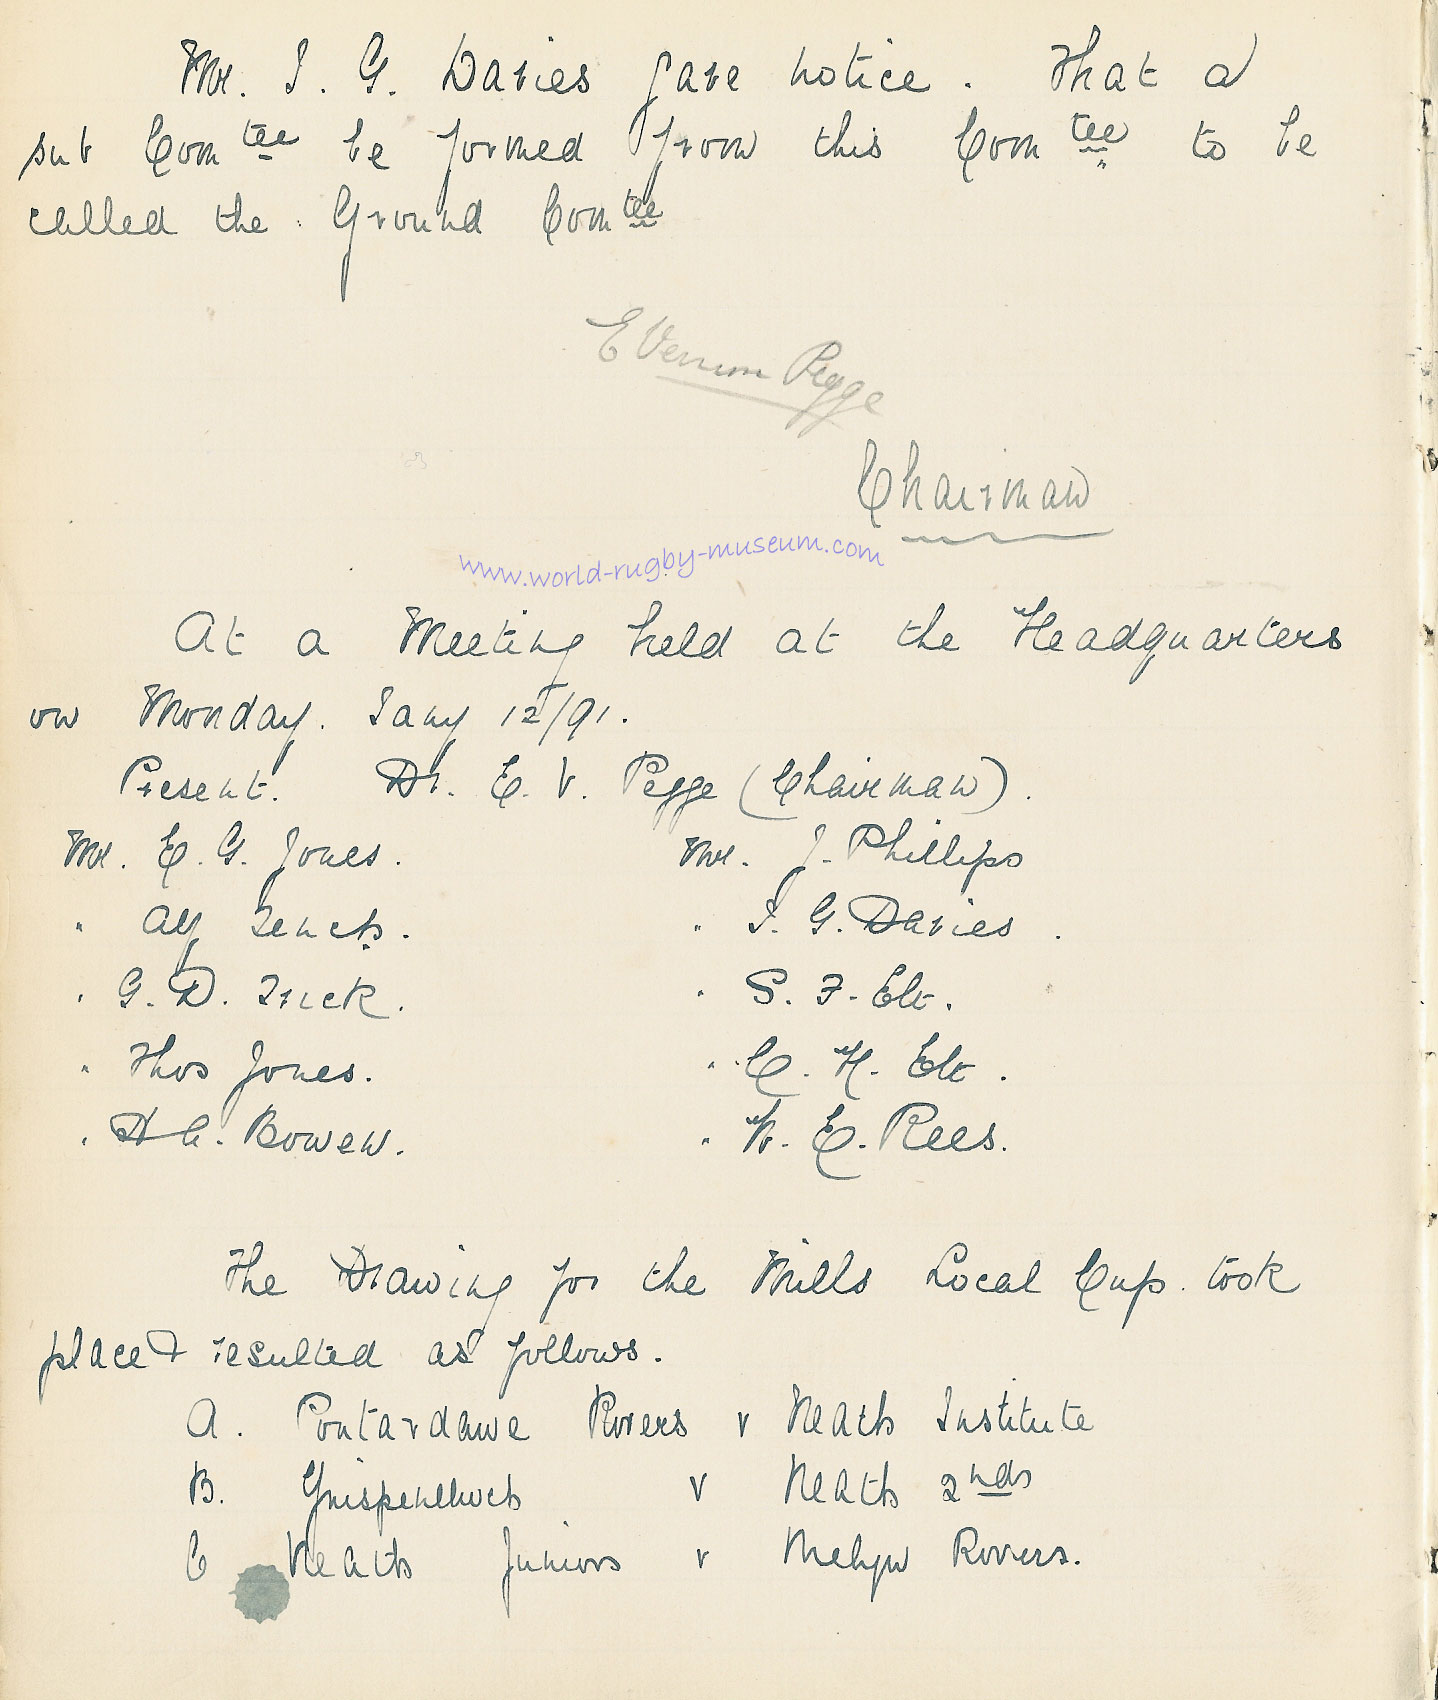 Mr. I. G. Davies gave notice. That a
sub Comtee be formed from this Comtee to be
called the Ground Comtee
E Vernon Pegge
Chairman
www.world-rugby-museum.com
At a Meeting held at the Headquarters
on Monday. Jany 12/91.
Present. Dr. E. V. Pegge (Chairman).
Mr. E. G. Jones. Mr. J. Phillips
" Alf Tench. " I. G. Davies.
" G. D. Trick. " S. F. Elt.
" Thos Jones. " C. H. Elt.
" D A. Bowen. " W. E. Rees.
The Drawing for the Mills Local Cup took
place & resulted as follows.
A. Pontardawe Rovers v Neath Institute
B. v Neath 2nds
C Neath Juniors v Melyn Rovers.